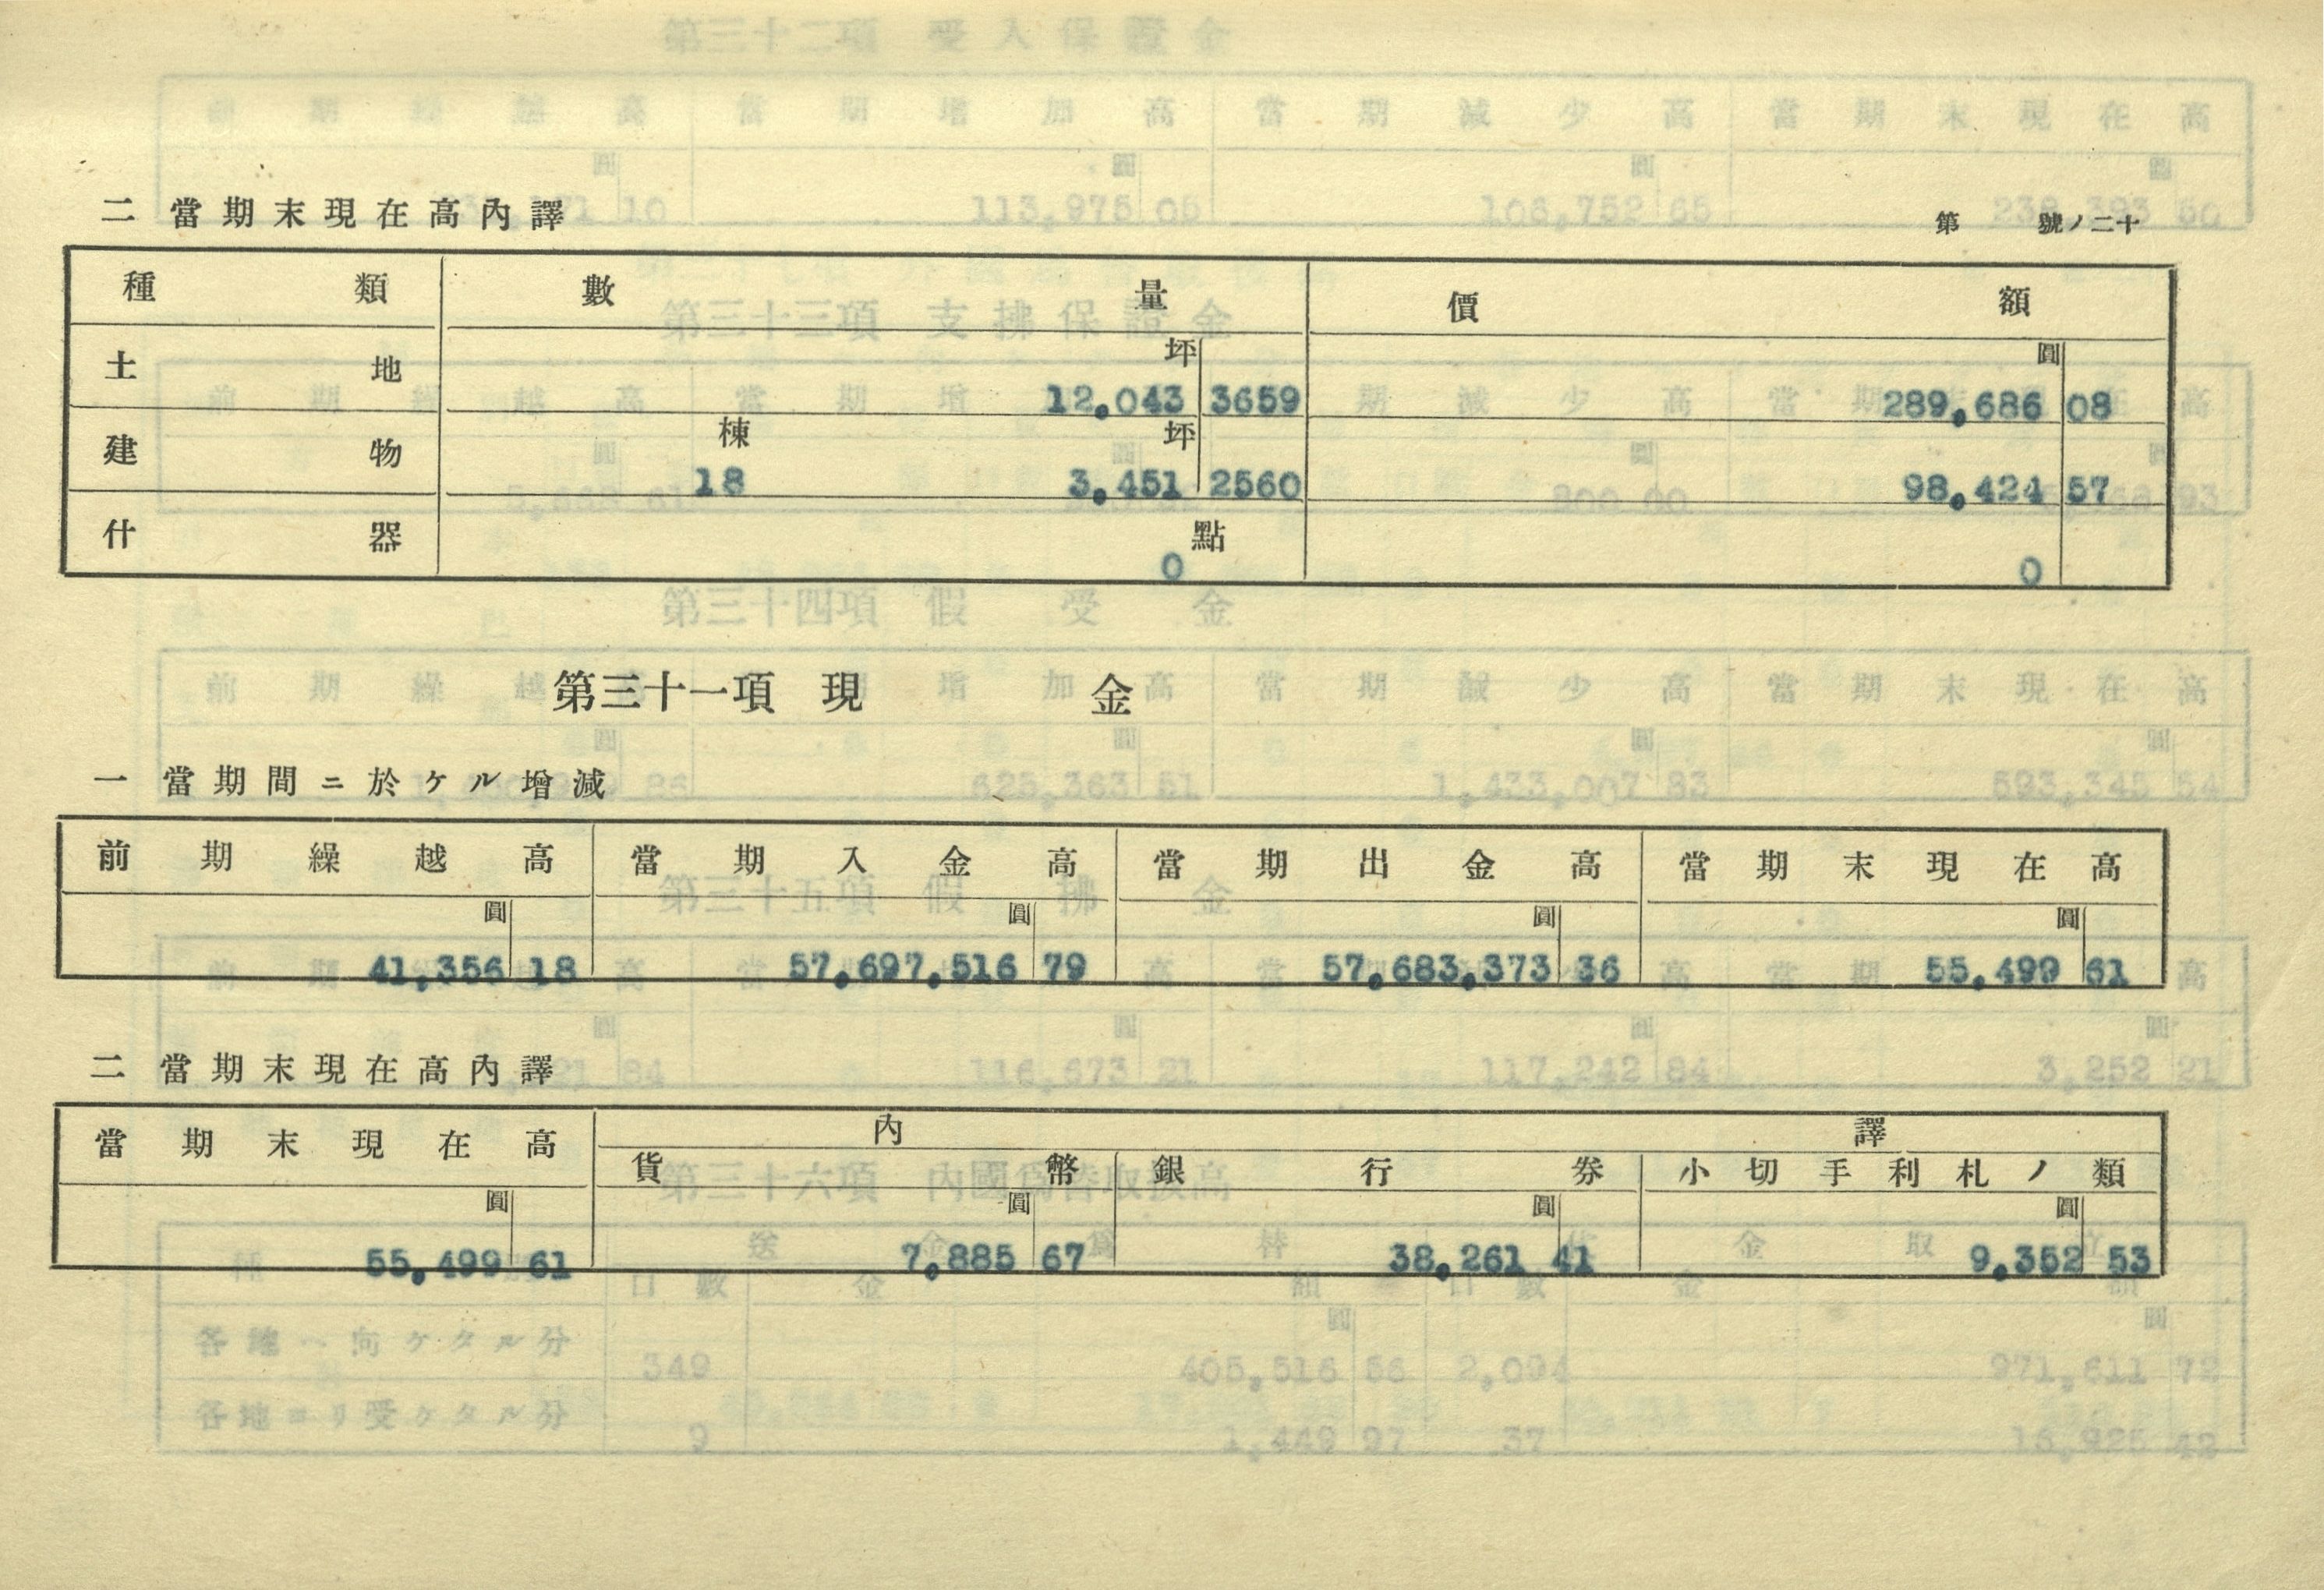 二 當期末現在高內譯
第 號ノ二十
種類 數量 價額
土地 坪 圓
12,043 3659 289,686 08
建物 棟 坪
18 3,451 2560 98,424 57
什器 點
0 0
第三十一項 現金
一 當期間ニ於ケル增減
前期繰越高 當期入金高 當期出金高 當期末現在高
圓 圓 圓 圓
41,356 18 57,697,516 79 57,683,373 36 55,499 61
二 當期末現在高內譯
當期末現在高 內譯
貨幣 銀行券 小切手利札ノ類
圓 圓 圓 圓
55,499 61 7,885 67 38,261 41 9,352 53